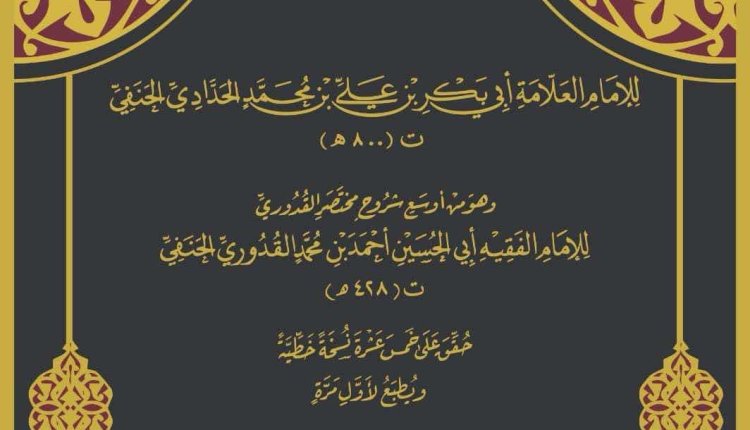 لِلإِمَامِ العَلَّامَةِ أَبِي بَكْرِ بْنِ عَلِيِّ بْنِ مُحَمَّدٍ الحَدَّادِيِّ الحَنَفِيِّ
ت (٨٠٠ هـ)
وهو من أوسع شروح مختصر القُدُوريِّ
لِلإِمَامِ الفَقِيهِ أَبِي الحُسَيْنِ أَحْمَدَ بْنِ مُحَمَّدٍ القُدُورِيِّ الحَنَفِيِّ
ت (٤٢٨ هـ)
حُقِّقَ عَلَى خَمْسَ عَشْرَةَ نُسْخَةً خَطِّيَّةً
ويُطْبَعُ لأَوَّلِ مَرَّةٍ